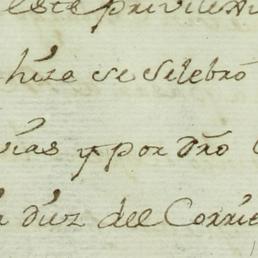 este privile
hiza se selebró
ias y por dro
diez del Corrie